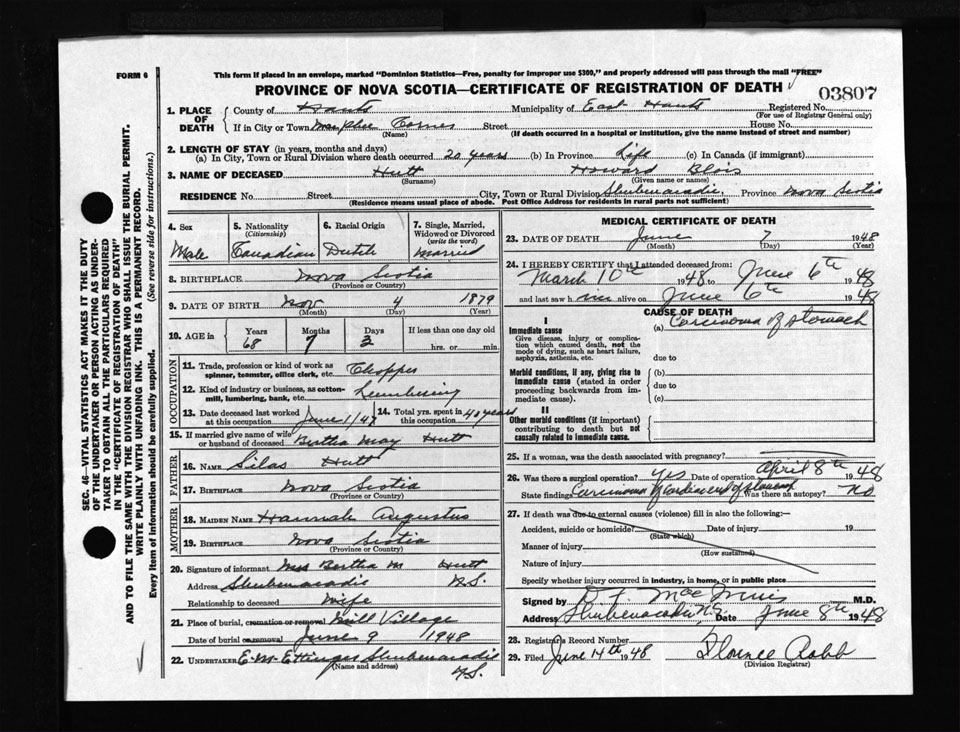 FORM 6
This form if placed in an envelope, marked "Dominion Statistics—Free, penalty for improper use $300," and properly addressed will pass through the mail "FREE"
PROVINCE OF NOVA SCOTIA—CERTIFICATE OF REGISTRATION OF DEATH
03807
1. PLACE OF DEATH County of Hants Municipality of East Hants Registered No.
(For use of Registrar General only)
If in City or Town Street House No.
(Name) (If death occurred in a hospital or institution, give the name instead of street and number)
2. LENGTH OF STAY (in years, months and days)
(a) In City, Town or Rural Division where death occurred 20 years (b) In Province Life (c) In Canada (if immigrant)
3. NAME OF DECEASED Hutt Howard Blois
(Surname) (Given name or names)
RESIDENCE No. Street City, Town or Rural Division Shubenacadie Province Nova Scotia
(Residence means usual place of abode. Post Office Address for residents in rural parts not sufficient)
4. Sex 5. Nationality 6. Racial Origin 7. Single, Married,
(Citizenship) Widowed or Divorced
(write the word)
Male Canadian Dutch Married
8. BIRTHPLACE Nova Scotia
(Province or Country)
9. DATE OF BIRTH Nov 4 1879
(Month) (Day) (Year)
10. AGE in Years Months Days If less than one day old
68 7 3 hrs. or min.
OCCUPATION
11. Trade, profession or kind of work as spinner, teamster, office clerk, etc. Chopper
12. Kind of industry or business, as cotton-mill, lumbering, bank, etc. Lumbering
13. Date deceased last worked at this occupation June 1/47 14. Total yrs. spent in this occupation 40 years
15. If married give name of wife or husband of deceased Bertha May Hutt
FATHER
16. NAME Silas Hutt
17. BIRTHPLACE Nova Scotia
(Province or Country)
MOTHER
18. MAIDEN NAME Hannah Augustus
19. BIRTHPLACE Nova Scotia
(Province or Country)
20. Signature of informant Bertha M Hutt
Address Shubenacadie N.S.
Relationship to deceased Wife
21. Place of burial, cremation or removal Mill Village
Date of burial or removal June 9 1948
22. UNDERTAKER E. M. Ettinger Shubenacadie
(Name and address) N.S.
MEDICAL CERTIFICATE OF DEATH
23. DATE OF DEATH June 7 1948
(Month) (Day) (Year)
24. I HEREBY CERTIFY that I attended deceased from:
March 10th 1948 to June 6th 1948
and last saw him alive on June 6th 1948
CAUSE OF DEATH
I
Immediate cause (a) Carcinoma of stomach
Give disease, injury or complication which caused death, not the mode of dying, such as heart failure, asphyxia, asthenia, etc.
due to
Morbid conditions, if any, giving rise to immediate cause (stated in order proceeding backwards from immediate cause).
(b)
due to
(c)
II
Other morbid conditions (if important) contributing to death but not causally related to immediate cause.
25. If a woman, was the death associated with pregnancy?
26. Was there a surgical operation? yes Date of operation April 8th 1948
State findings Carcinoma of cardiac end of stomach Was there an autopsy? No
27. If death was due to external causes (violence) fill in also the following:—
Accident, suicide or homicide? Date of injury 19
(State which)
Manner of injury
(How sustained)
Nature of injury
Specify whether injury occurred in industry, in home, or in public place
Signed by D. F. MacInnis M.D.
Address Shubenacadie, N.S. Date June 8th 1948
28. Registrar's Record Number
29. Filed June 14th 1948 Florence Robb
(Division Registrar)
SEC. 46—VITAL STATISTICS ACT MAKES IT THE DUTY
OF THE UNDERTAKER OR PERSON ACTING AS UNDER-
TAKER TO OBTAIN ALL THE PARTICULARS REQUIRED
IN THE "CERTIFICATE OF REGISTRATION OF DEATH"
AND TO FILE THE SAME WITH THE DIVISION REGISTRAR WHO SHALL ISSUE THE BURIAL PERMIT.
WRITE PLAINLY WITH UNFADING INK. THIS IS A PERMANENT RECORD.
Every item of information should be carefully supplied. (See reverse side for instructions.)